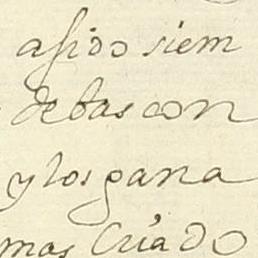 asido siem
debas con
y los gana
mas Criado